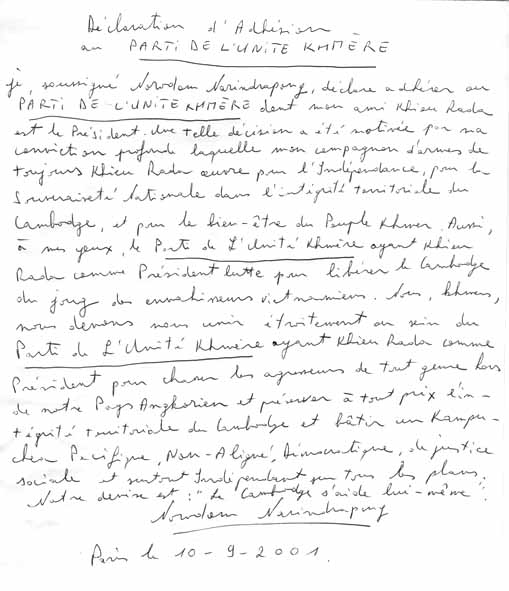 Déclaration d'Adhésion
au PARTI DE L'UNITE KHMÈRE
je, soussigné Norodom Narindrapong, déclare adhérer au
PARTI DE L'UNITE KHMÈRE dont mon ami Khieu Rada
est le Président. Une telle décision a été motivée par ma
conviction profonde laquelle mon compagnon d'armes de
toujours Khieu Rada œuvre pour l'Indépendance, pour la
Souveraineté Nationale dans l'intégrité territoriale du
Cambodge, et pour le bien-être du Peuple Khmer. Aussi,
à mes yeux, le Parti de L'Unité Khmère ayant Khieu
Rada comme Président lutte pour libérer le Cambodge
du joug des envahisseurs vietnamiens. Nous, khmers,
nous devons nous unir étroitement au sein du
Parti de L'Unité Khmère ayant Khieu Rada comme
Président pour chasser les agresseurs de tout genre hors
de notre Pays Angkorien et préserver à tout prix l'in-
tégrité territoriale du Cambodge et bâtir un Kampu-
chea Pacifique, Non-Aligné, Démocratique, de justice
sociale et surtout Indépendant sur tous les plans.
Notre devise est : "Le Cambodge s'aide lui-même".
Norodom Narindrapong
Paris le 10-9-2001.